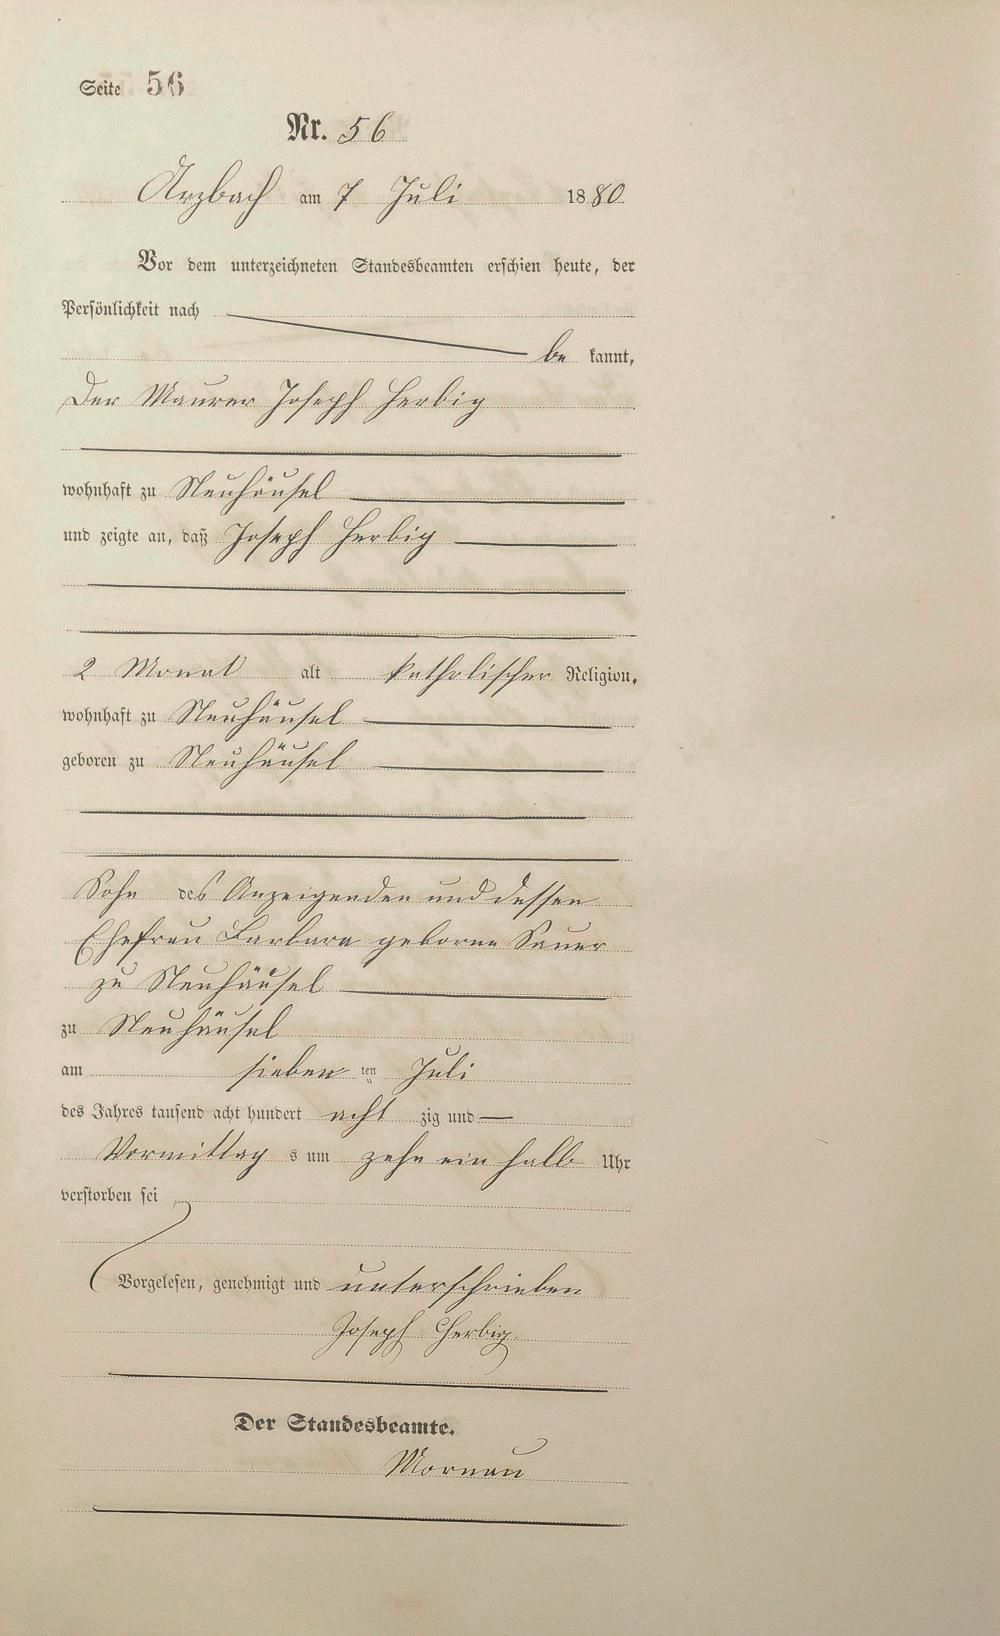 Seite 56
Nr. 56
Arzbach am 7 Juli 1880.
Vor dem unterzeichneten Standesbeamten erschien heute, der
Persönlichkeit nach
be kannt,
Der Maurer Joseph Herbig
wohnhaft zu Neuhäusel
und zeigte an, daß Joseph Herbig
2 Monat alt katholischer Religion,
wohnhaft zu Neuhäusel
geboren zu Neuhäusel
Sohn des Anzeigenden und dessen
Ehefrau Barbara geborne Sauer
zu Neuhäusel
zu Neuhäusel
am sieben ten Juli
des Jahres tausend acht hundert acht zig und —
Vormittag s um zehn ein halb Uhr
verstorben sei
Vorgelesen, genehmigt und unterschrieben
Joseph Herbig
Der Standesbeamte.
Mornau